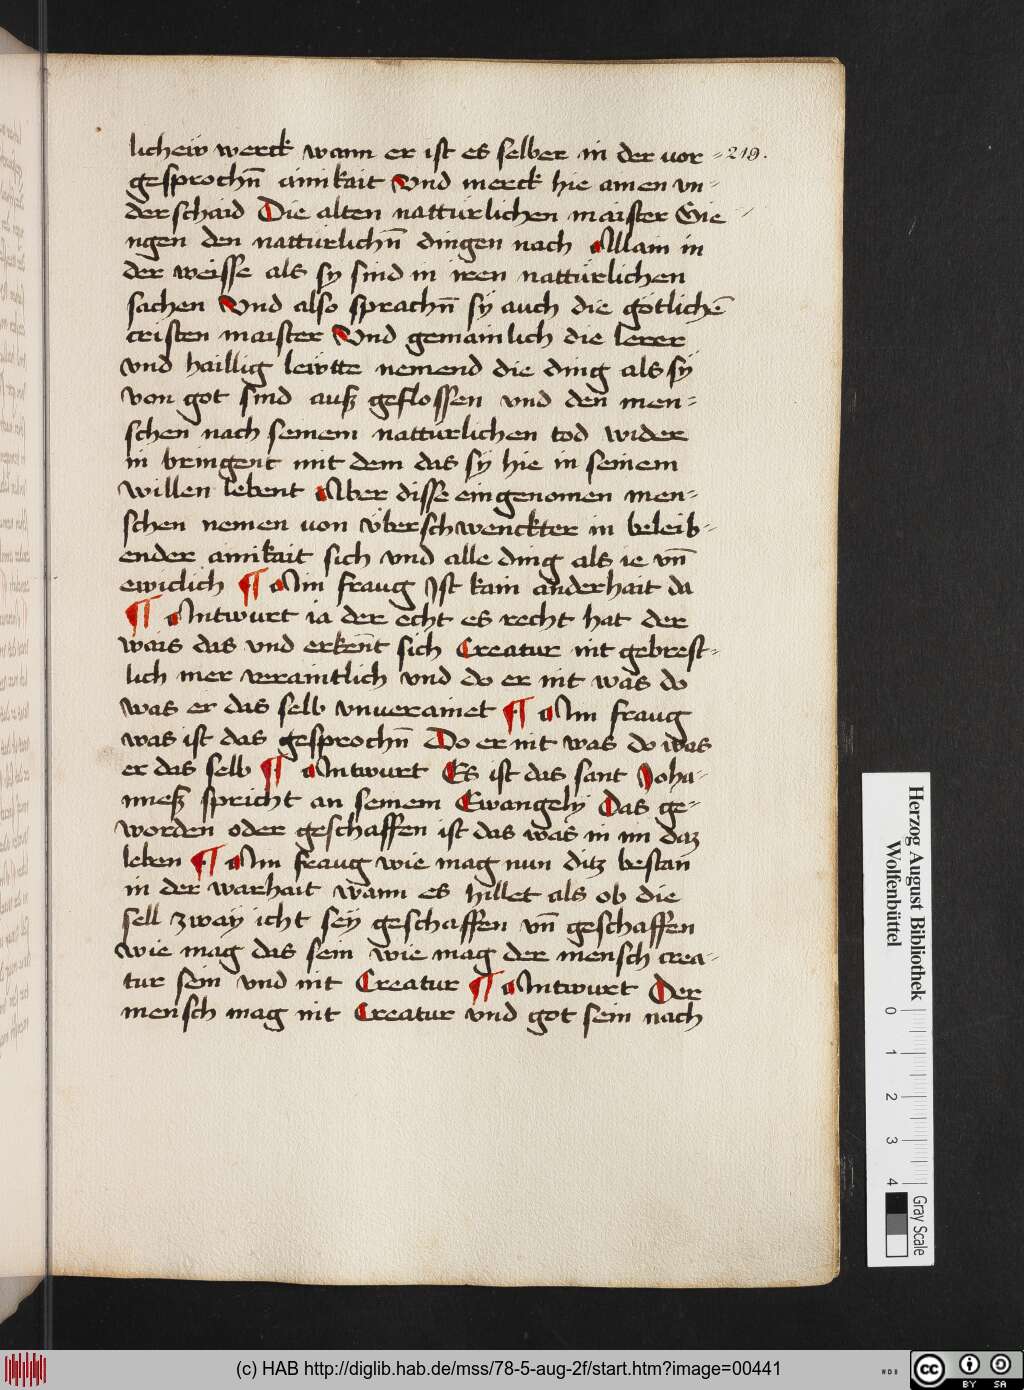 licheÿ werck wann er ist es selber in der vor = 219.
gesprochn̄ ainikait Vnd merck hie ainen vn=
derschaid Die alten natturlichen maister Gie
ngen den natturlichn̄ dingen nach Allain in
der weisse als sy sind in iren natturlichen
sachen Vnd also sprachn̄ sy auch die götlichē
cristen maister Vnd gemainlich die lerer
vnd haillig leẅtte nemend die ding als sy
von got sind auß geflossen vnd den men=
schen nach seinem natturlichen tod wider
in bringent mit dem das sy hie in seinem
willen lebent Aber disse eingenomen men=
schen nemen von überschwenckter in beleib=
ender ainikait sich vnd alle ding als ie vn̄
ewiclich ¶ Ain fraug Ist kain anderhait da
¶ Antwurt ia der echt es recht hat der
wais das vnd erken̄t sich Creatur nit gebrest=
lich mer veraintlich vnd do er nit was do
was er das selb vnuerainet ¶ Ain fraug
was ist das gesprochn̄ Do er nit was do was
er das selb ¶ Antwurt Es ist das sant Joha=
nneß spricht an seinem Ewangely Das ge=
worden oder geschaffen ist das was in im daz
leben ¶ Ain fraug wie mag nun ditz bestan
in der warhait wann es hillet als ob die
sell zway icht seÿ geschaffen vn̄ geschaffen
wie mag das sein wie mag der mensch crea=
tur sein vnd nit Creatur ¶ Antwurt Der
mensch mag nit Creatur vnd got sein nach
Herzog August Bibliothek
Wolfenbüttel
0 1 2 3 4
Gray Scale
(c) HAB http://diglib.hab.de/mss/78-5-aug-2f/start.htm?image=00441
WDB
cc BY SA